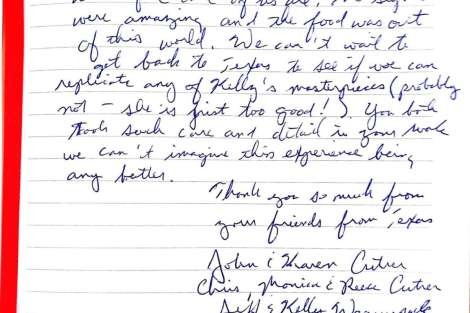 were amazing and the food was out
of this world. We can't wait to
get back to Texas to see if we can
replicate any of Kelly's masterpieces (probably
not - she is just too good!). You both
took such care and detail in your work
we can't imagine this experience being
any better.
Thank you so much from
your friends from Texas
John & Karen Cutrer
Chris, Monica & Reese Cutrer
Jeff & Kelly